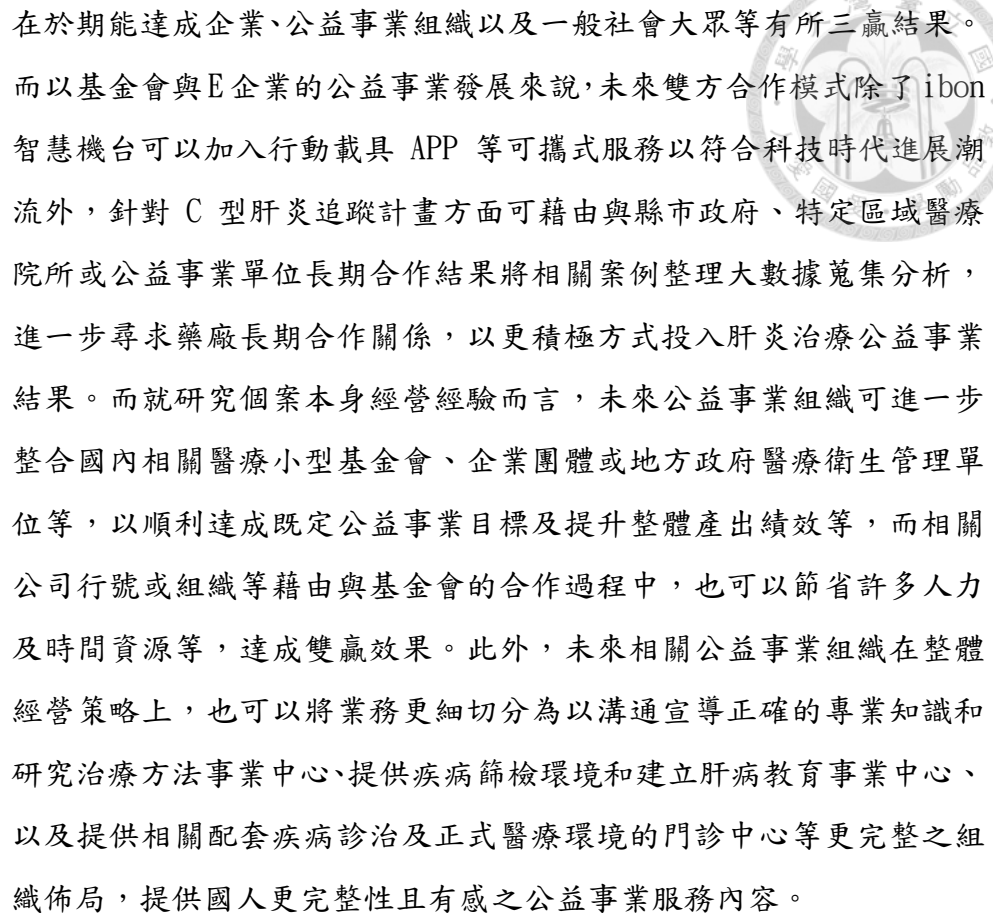 在於期能達成企業、公益事業組織以及一般社會大眾等有所三贏結果。
而以基金會與E企業的公益事業發展來說,未來雙方合作模式除了ibon
智慧機台可以加入行動載具 APP 等可攜式服務以符合科技時代進展潮
流外，針對 C 型肝炎追蹤計畫方面可藉由與縣市政府、特定區域醫療
院所或公益事業單位長期合作結果將相關案例整理大數據蒐集分析，
進一步尋求藥廠長期合作關係，以更積極方式投入肝炎治療公益事業
結果。而就研究個案本身經營經驗而言，未來公益事業組織可進一步
整合國內相關醫療小型基金會、企業團體或地方政府醫療衛生管理單
位等，以順利達成既定公益事業目標及提升整體產出績效等，而相關
公司行號或組織等藉由與基金會的合作過程中，也可以節省許多人力
及時間資源等，達成雙贏效果。此外，未來相關公益事業組織在整體
經營策略上，也可以將業務更細切分為以溝通宣導正確的專業知識和
研究治療方法事業中心、提供疾病篩檢環境和建立肝病教育事業中心、
以及提供相關配套疾病診治及正式醫療環境的門診中心等更完整之組
織佈局，提供國人更完整性且有感之公益事業服務內容。